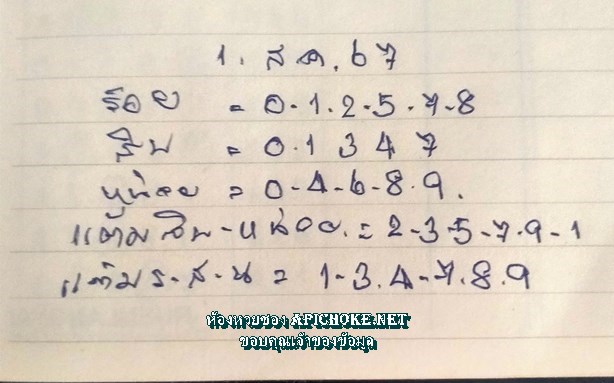 1. ส ค. 67
ร้อย = 0-1-2-5-7-8
สิบ = 0.1 3 4 7
หน่วย = 0-4-6-8-9.
แต้มสิบ-หน่วย. = 2-3-5-7-9-1
แต้มร-ส-น = 1-3.4-7.8.9
ห้องหวยซอง APICHOKE.NET
ขอบคุณเจ้าของข้อมูล